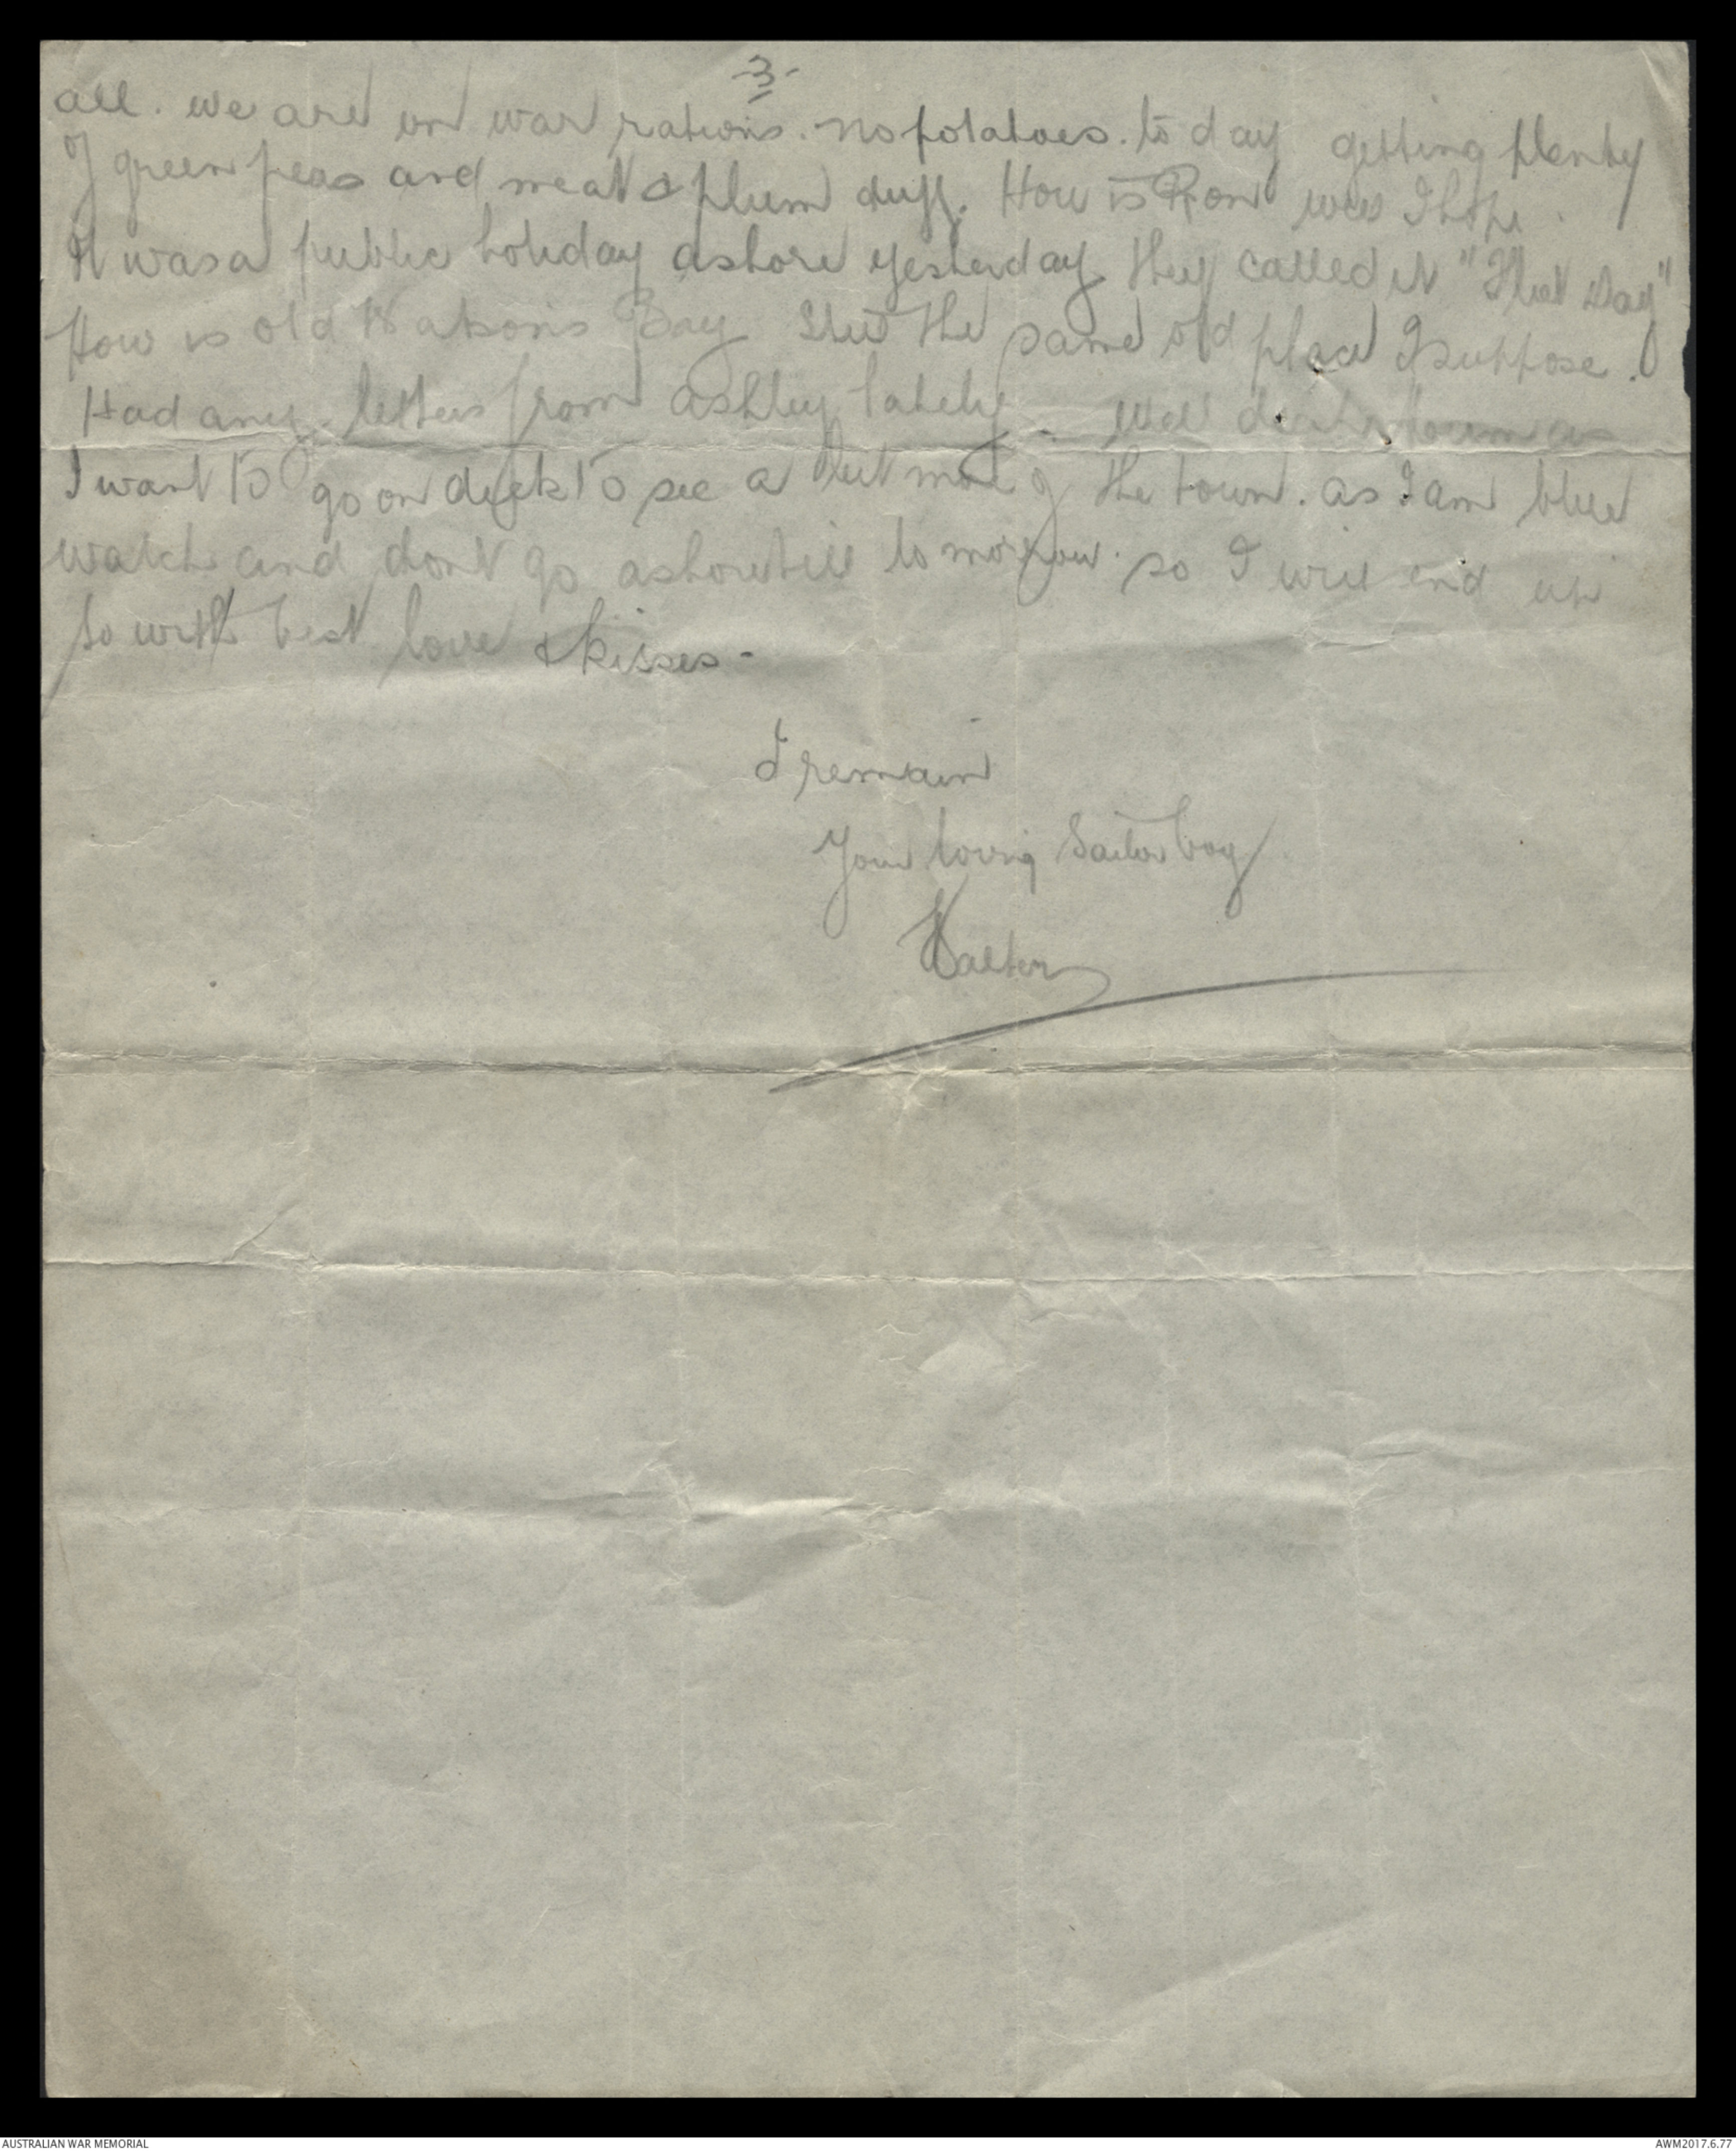 -3-
all. we are on war rations. no potatoes. to day getting plenty
of green peas and meat & plum duff. How is Ron well I hope.
It was a public holiday ashore yesterday they called it "Fleet Day"
How is old Watsons Bay Still the same old place I suppose.
Had any letters from Ashley lately. Well dear
I want to go on deck to see a bit more of the town. as I am blue
watch and dont go ashore till to morrow. so I will end up
so with best love & kisses-
I remain
Your loving Sailor boy
Walter
AUSTRALIAN WAR MEMORIAL
AWM2017.6.77